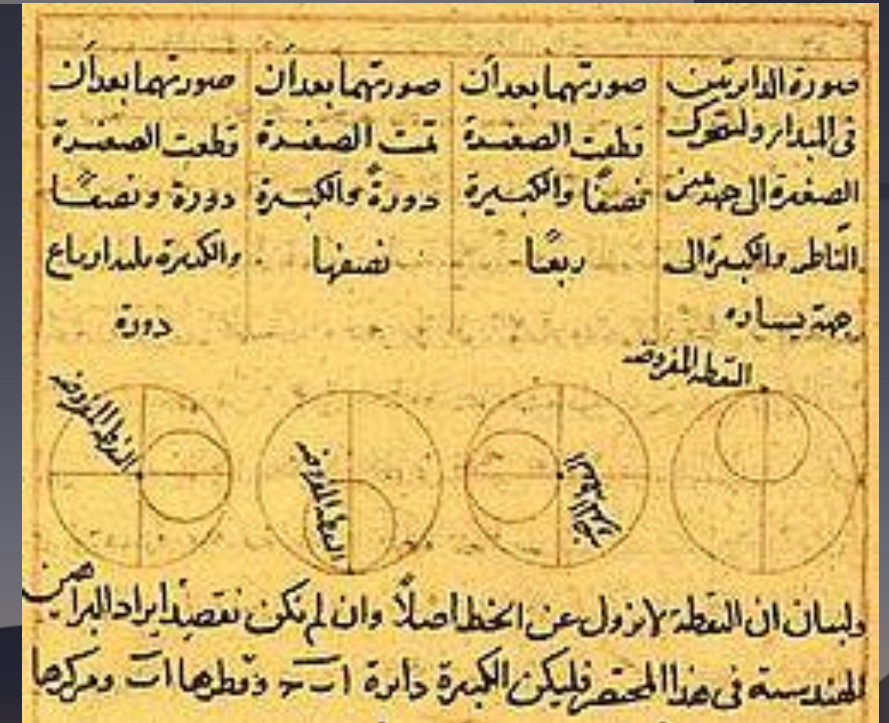 صورة الدائرتين
فى المبدا ولتتحرك
الصغيرة الى جهة يمين
الناظر والكبيرة الى
جهة يساره
صورتهما بعد ان
قطعت الصغيرة
نصفا والكبيرة
ربعا
صورتهما بعد ان
تمت الصغيرة
دورة والكبيرة
نصفها
صورتهما بعد ان
قطعت الصغيرة
دورة ونصفا
والكبيرة ثلثة ارباع
دورة
النقطة المفروضة
النقطة المفروضة
النقطة المفروضة
النقطة المفروضة
ولبيان ان النقطة لا تزول عن الخط اصلاً وان لم نكن نقصد ايراد البراهين
الهندسية فى هذا المختصر فليكن الكبيرة دائرة ا ب ج وقطرها ا ب ومركزها